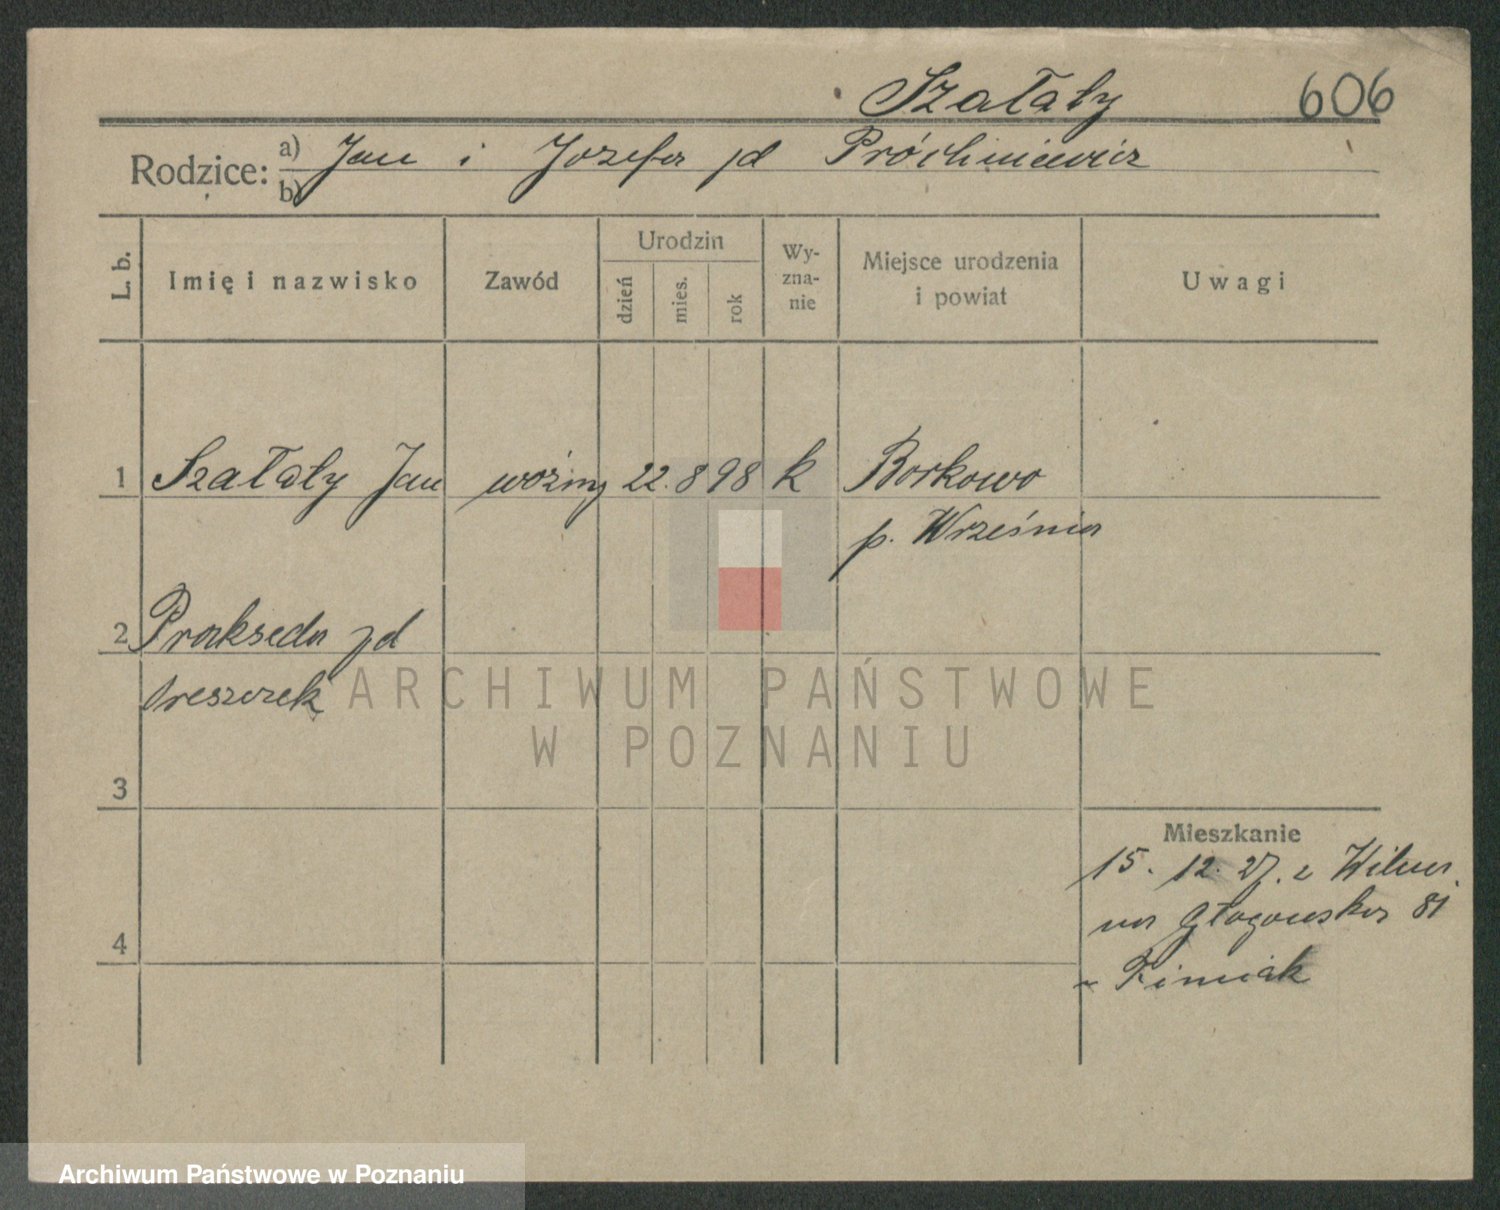 Szałaty
606
Rodzice: a) Jan i Jozefa zd Próchniewicz
b)
L. b.
Imię i nazwisko
Zawód
Urodzin
dzień
mies.
rok
Wy-
zna-
nie
Miejsce urodzenia
i powiat
Uwagi
1 Szałaty Jan woźny 22. 8 98 k Borkowo
p. Września
2 Prakseda zd
3
4
Mieszkanie
15. 12. 27. z Wilna
na Głogowska 81
ARCHIWUM PAŃSTWOWE
W POZNANIU
Archiwum Państwowe w Poznaniu